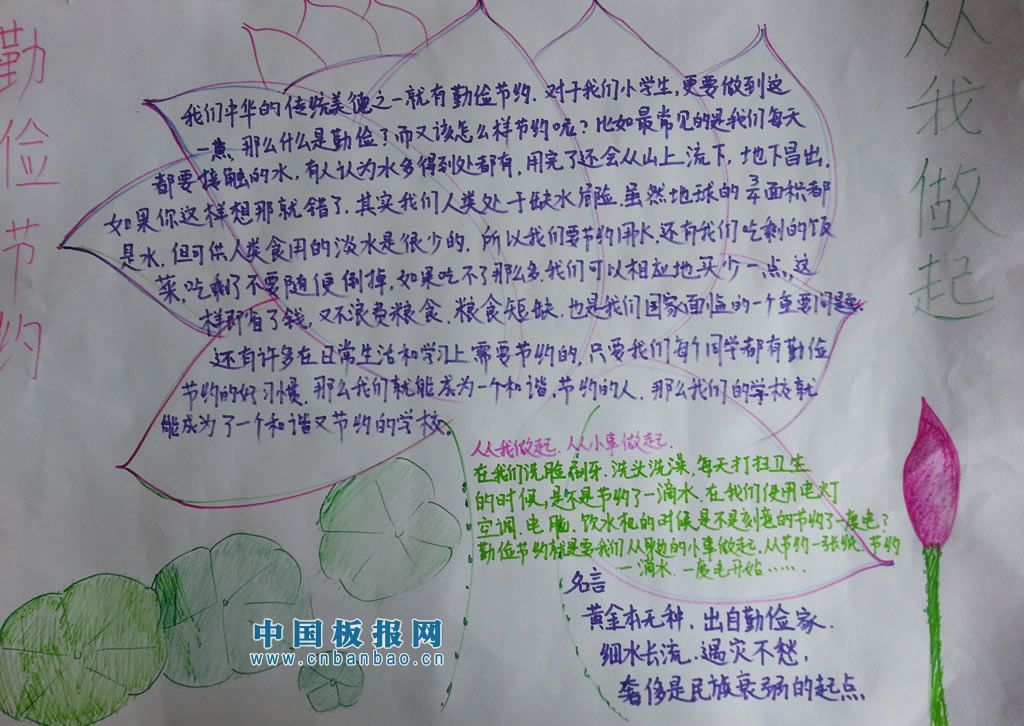 勤俭节约
从我做起
我们中华的传统美德之一就有勤俭节约.对于我们小学生,更要做到这
一点,那么什么是勤俭?而又该怎么样节约呢?比如最常见的是我们每天
都要接触的水,有人认为水多得到处都有,用完了还会从山上流下,地下冒出,
如果你这样想那就错了.其实我们人类处于缺水危险.虽然地球的3/4面积都
是水,但可供人类食用的淡水是很少的,所以我们要节约用水.还有我们吃剩的饭
菜,吃剩了不要随便倒掉,如果吃不了那么多,我们可以相应地买少一点,这
样即省了钱,又不浪费粮食.粮食短缺.也是我们国家面临的一个重要问题.
还有许多在日常生活和学习上需要节约的,只要我们每个同学都有勤俭
节约的好习惯,那么我们就能成为一个和谐,节约的人.那么我们的学校就
能成为了一个和谐又节约的学校。
从我做起.从小事做起.
在我们洗脸刷牙.洗头洗澡.每天打扫卫生
的时候,是不是节约了一滴水.在我们使用电灯
空调.电脑.饮水机的时候是不是刻意的节约了一度电?
勤俭节约就是要我们从身边的小事做起.从节约一张纸.节约
一滴水.一度电开始……
名言
黄金本无种,出自勤俭家.
细水长流.遇灾不愁,
奢侈是民族衰弱的起点.
中国板报网
www.cnbanbao.cn